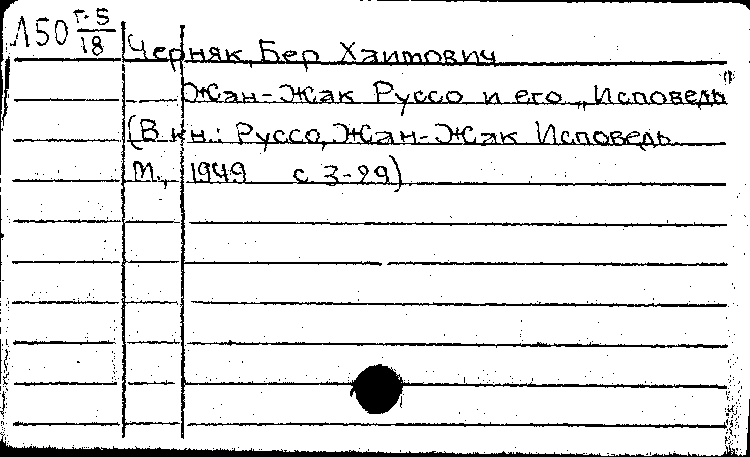 Л50 Г-5/18
Черняк, Бер Хаимович
Жан-Жак Руссо и его „Исповедь"
(В кн.: Руссо, Жан-Жак Исповедь
М., 1949 с 3-29)